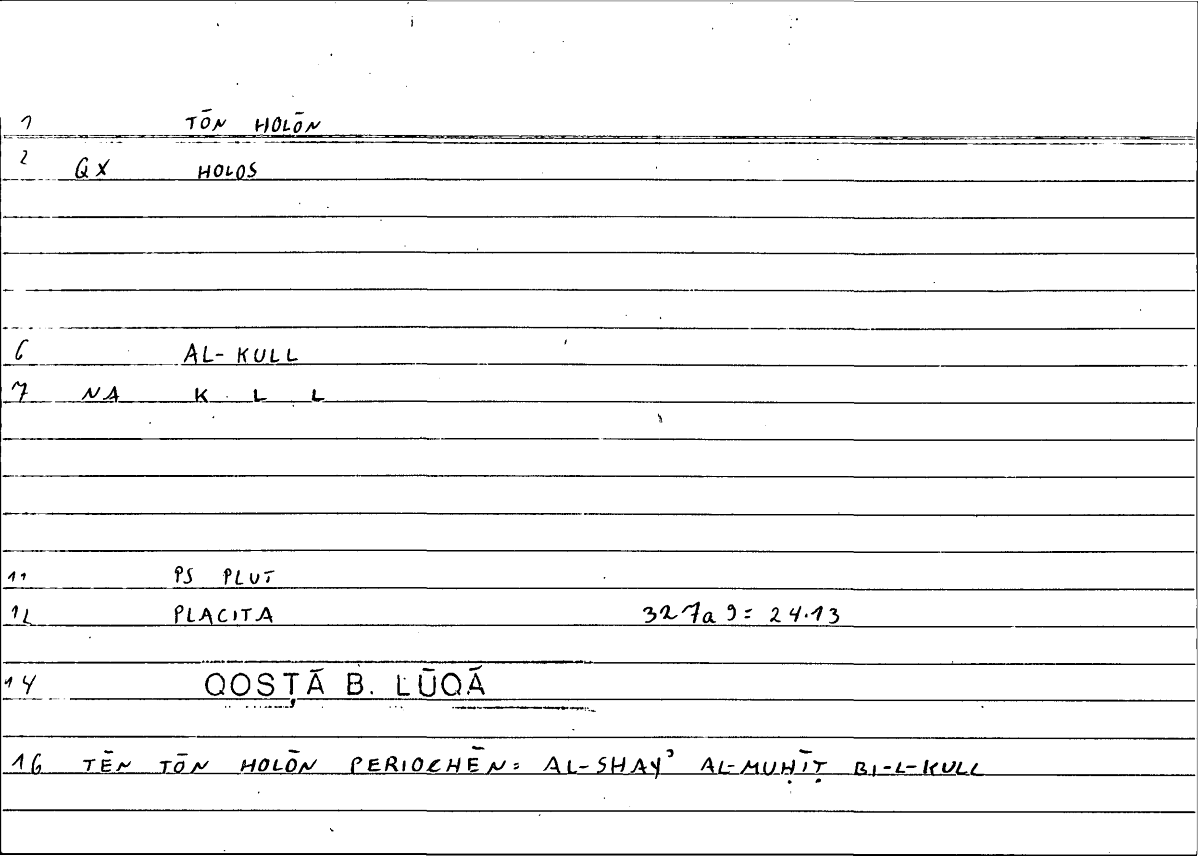 1 TŌN HOLŌN
2 QX HOLOS
6 AL-KULL
7 NA K L L
11 PS PLUT
12 PLACITA 327a9= 24.13
14 QOSṬĀ B. LŪQĀ
16 TĒN TŌN HOLŌN PERIOCHĒN: AL-SHAYʾ AL-MUḤĪṬ BI-L-KULL